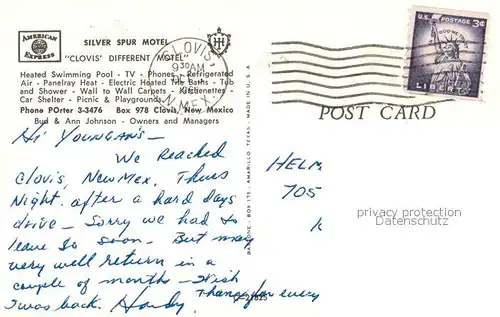 AMERICAN EXPRESS
SILVER SPUR MOTEL
"CLOVIS' DIFFERENT MOTEL"
Heated Swimming Pool - TV - Phones - Refrigerated
Air - Panelray Heat - Electric Heated Tile Baths - Tub
and Shower - Wall to Wall Carpets - Kitchenettes -
Car Shelter - Picnic & Playgrounds
Phone POrter 3-3476 Box 978 Clovis, New Mexico
Bud & Ann Johnson - Owners and Managers
CLOVIS,
930 AM
N. MEX.
U.S. POSTAGE 3¢
IN GOD WE TRUST
LIBERTY
POST CARD
BOX 175 - AMARILLO, TEXAS - MADE IN U. S. A.
Hi Youngans -
We Reached
Clovis, New Mex. Thurs
Night. after a hard days
drive - Sorry we had to
leave so soon. But may
very well return in a
couple of months - Wish
I was back. Handy
Thanx for every
HELM
705
privacy protection
watermark for